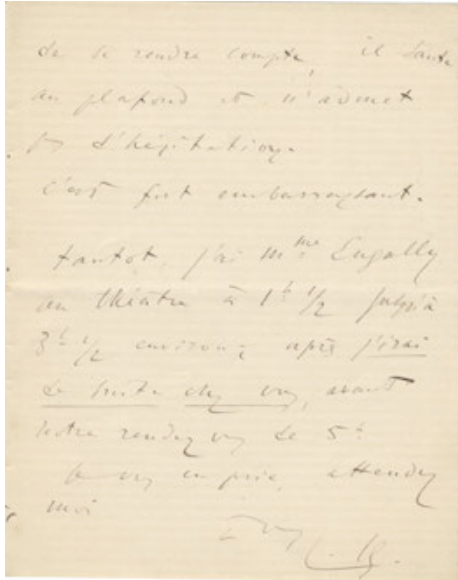 de se rendre compte, il saute
au plafond et n'admet
pas d'hésitation.
C'est fort embarrassant.
tantot, j'ai Mme Engally
au théâtre à 1h 1/2 jusqu'à
3h 1/2 environ, après j'irai
de suite chez vous, avant
notre rendez vous de 5h
Je vous en prie, attendez
moi